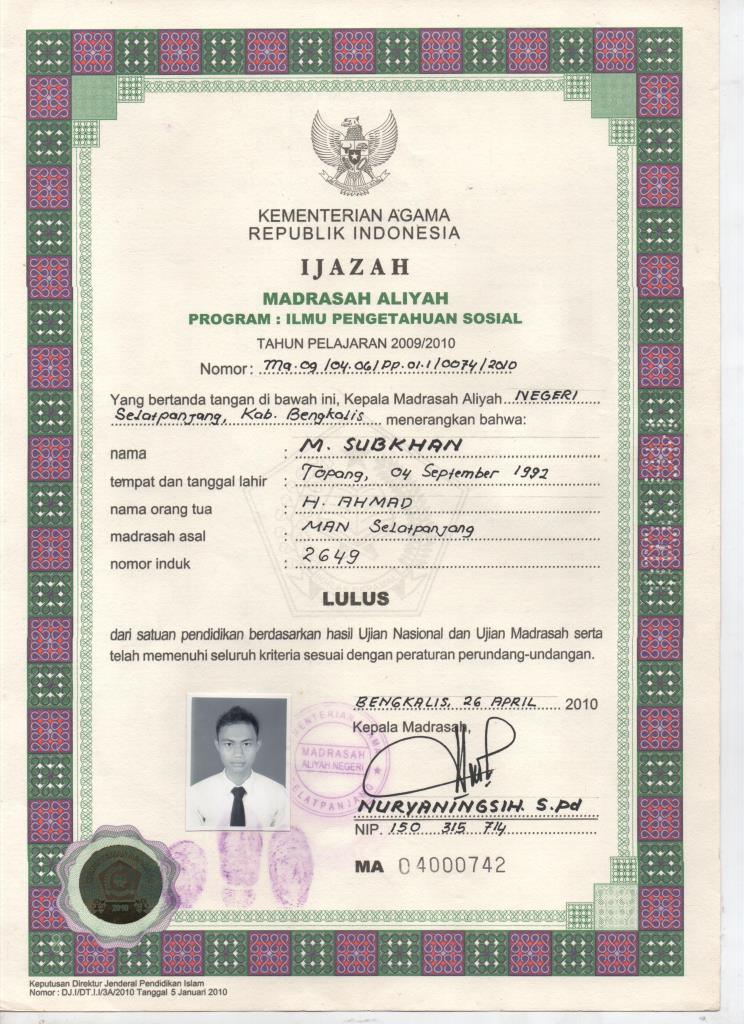 KEMENTERIAN AGAMA
REPUBLIK INDONESIA
IJAZAH
MADRASAH ALIYAH
PROGRAM : ILMU PENGETAHUAN SOSIAL
TAHUN PELAJARAN 2009/2010
Nomor : Ma.09/04.06/PP.01.1/0074/2010
Yang bertanda tangan di bawah ini, Kepala Madrasah Aliyah NEGERI
Selatpanjang, Kab. Bengkalis menerangkan bahwa:
nama : M. SUBKHAN
tempat dan tanggal lahir : Topang, 04 September 1992
nama orang tua : H. AHMAD
madrasah asal : MAN Selatpanjang
nomor induk : 2649
LULUS
dari satuan pendidikan berdasarkan hasil Ujian Nasional dan Ujian Madrasah serta
telah memenuhi seluruh kriteria sesuai dengan peraturan perundang-undangan.
BENGKALIS, 26 APRIL 2010
Kepala Madrasah,
KEMENTERIAN AGAMA
MADRASAH
ALIYAH NEGERI
SELATPANJANG
NURYANINGSIH. S.Pd
NIP. 150 315 714
MA 04000742
2010
Keputusan Direktur Jenderal Pendidikan Islam
Nomor : DJ.I/DT.I.I/3A/2010 Tanggal 5 Januari 2010